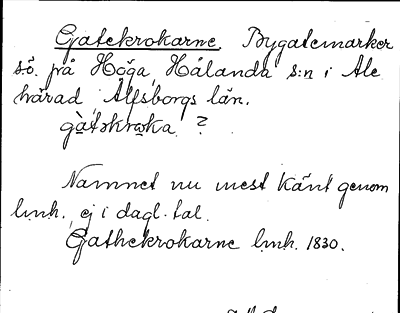 Gatekrokarne. Bygatemarker
s.ö. på Höga, Hålanda s:n i Ale
härad, Älfsborgs län.
gàtəkro̱ka ?
Namnet nu mest känt genom
lmh., ej i dagl. tal.
Gathekrokarne lmh. 1830.